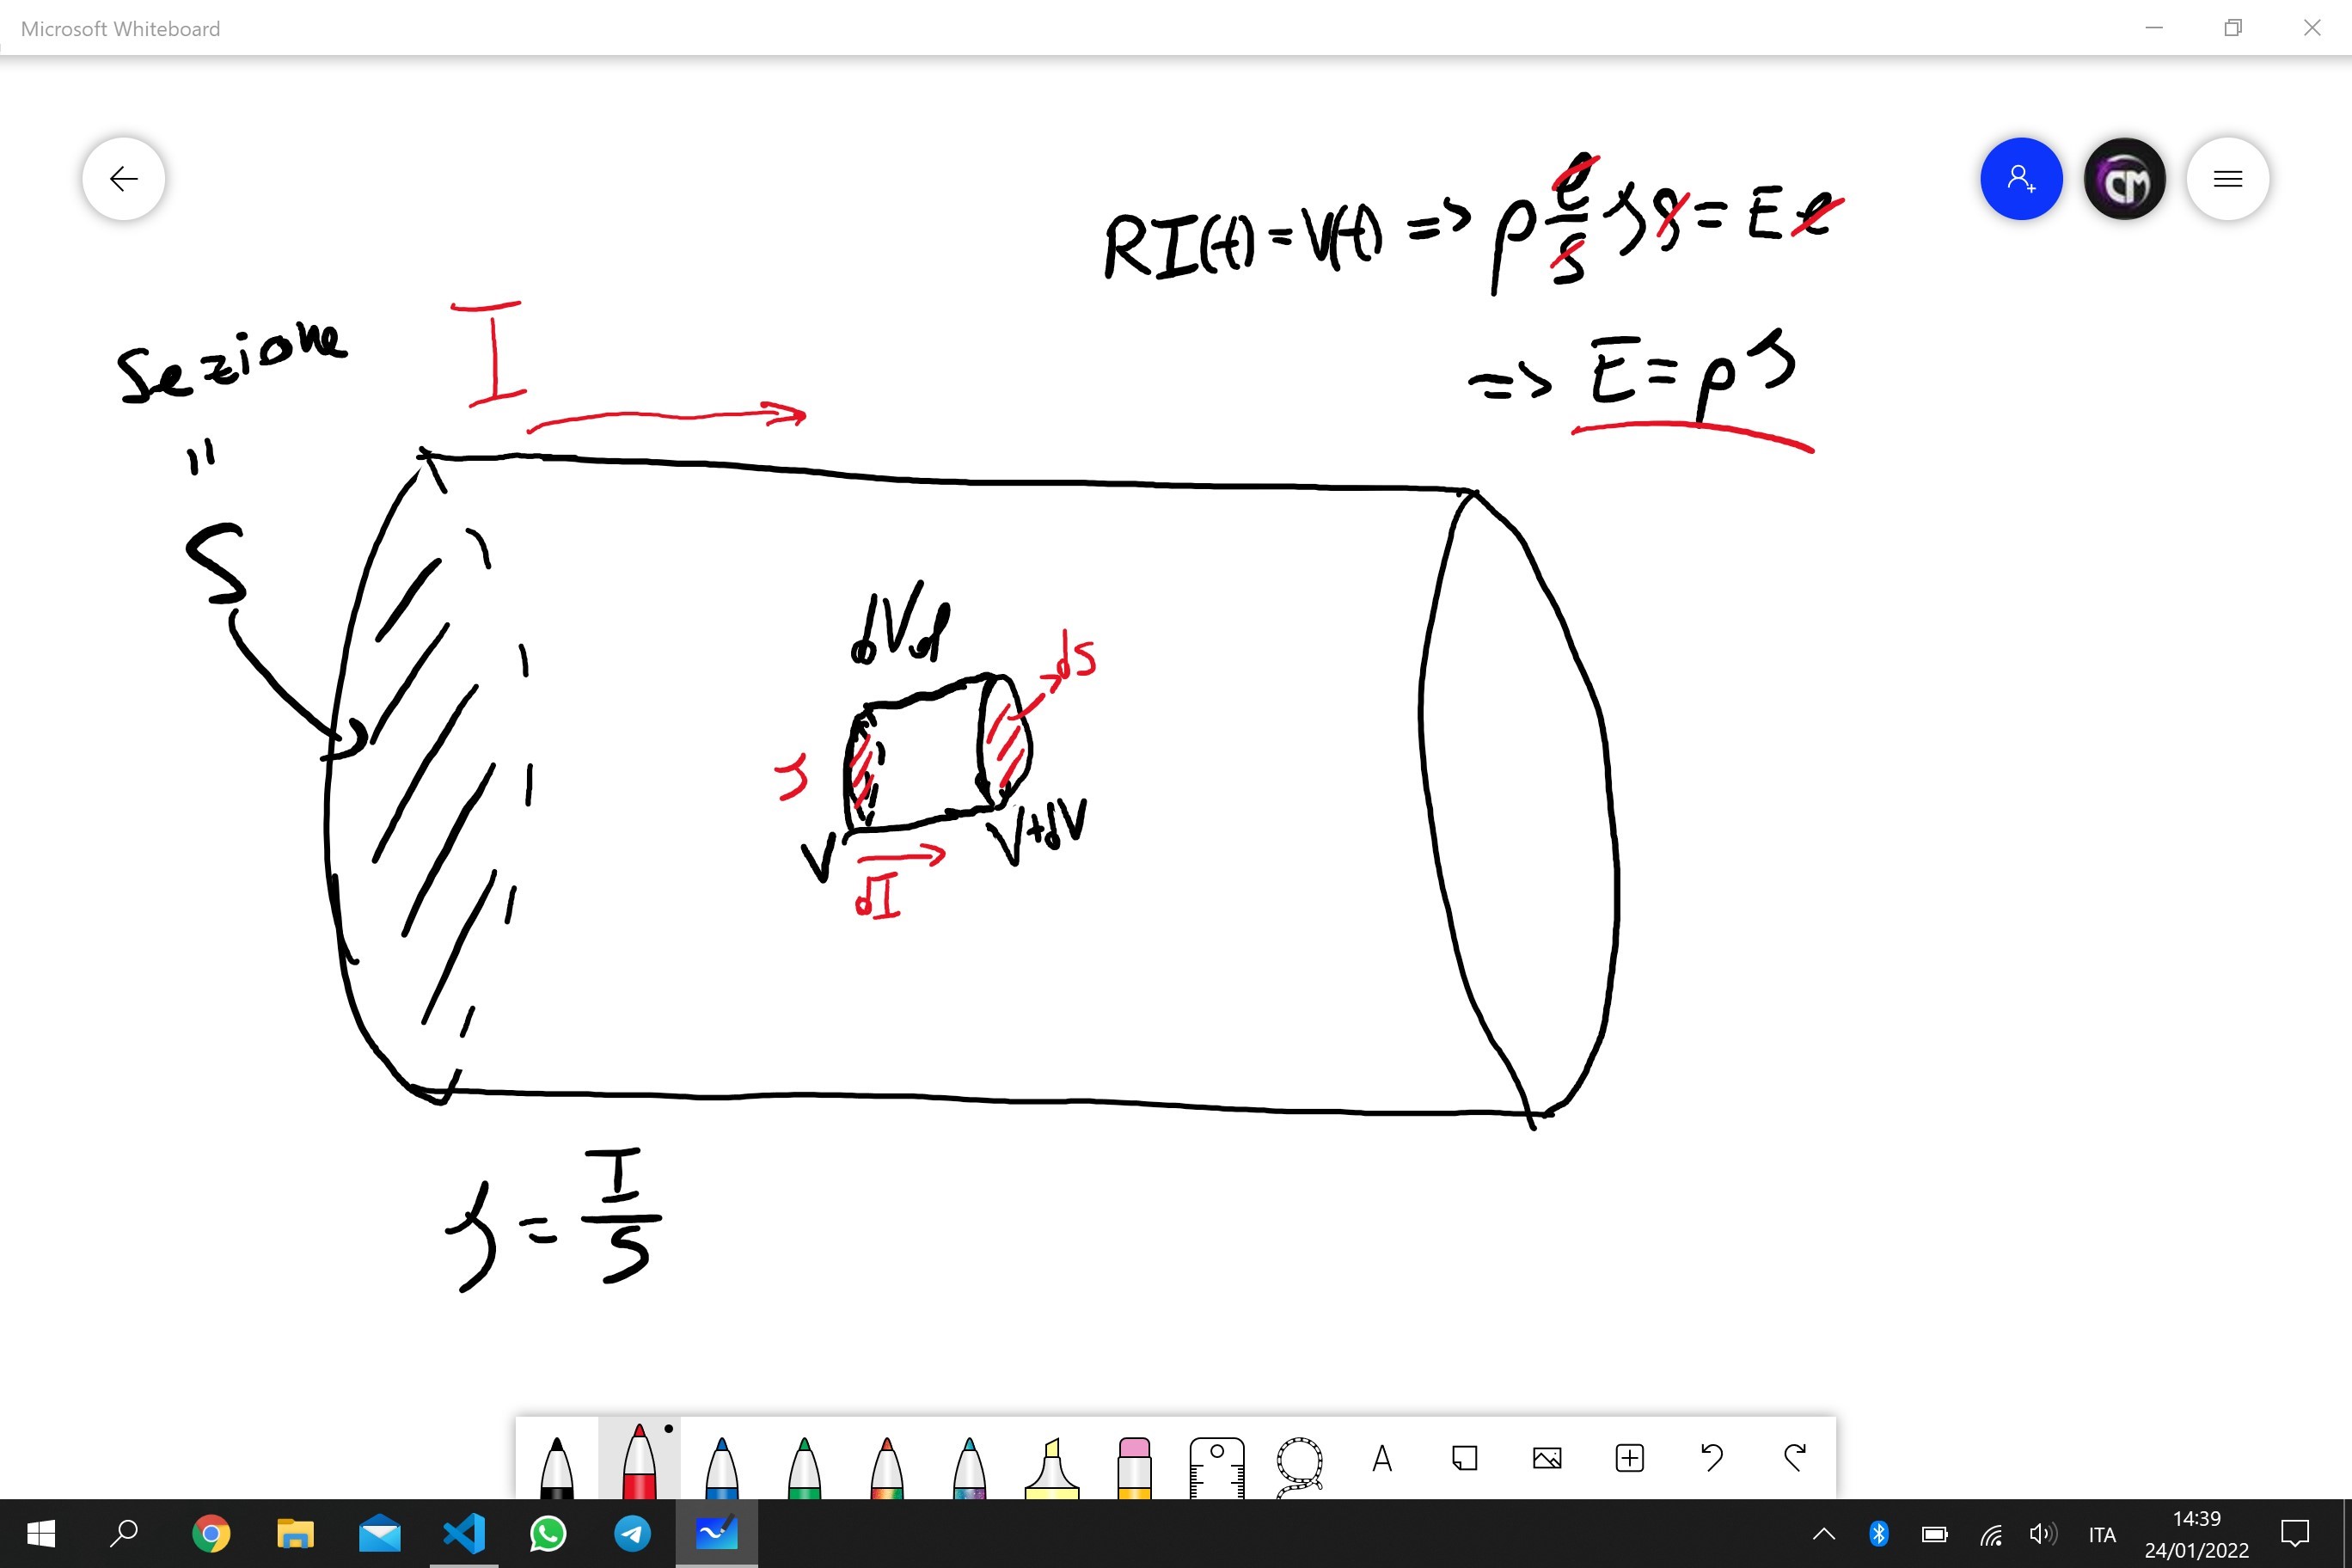 Microsoft Whiteboard
RI(t) = V(t) => ρ ℓ/S J S = E ℓ
=> E = ρ J
Sezione
"
S
I
dVol
dS
J
V
V+dV
dI
J = I/S
CM
A
ITA
14:39
24/01/2022